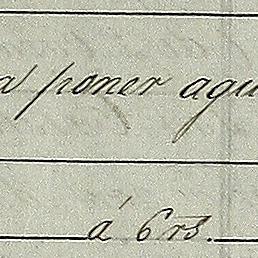 a poner agu
á 6 rs.